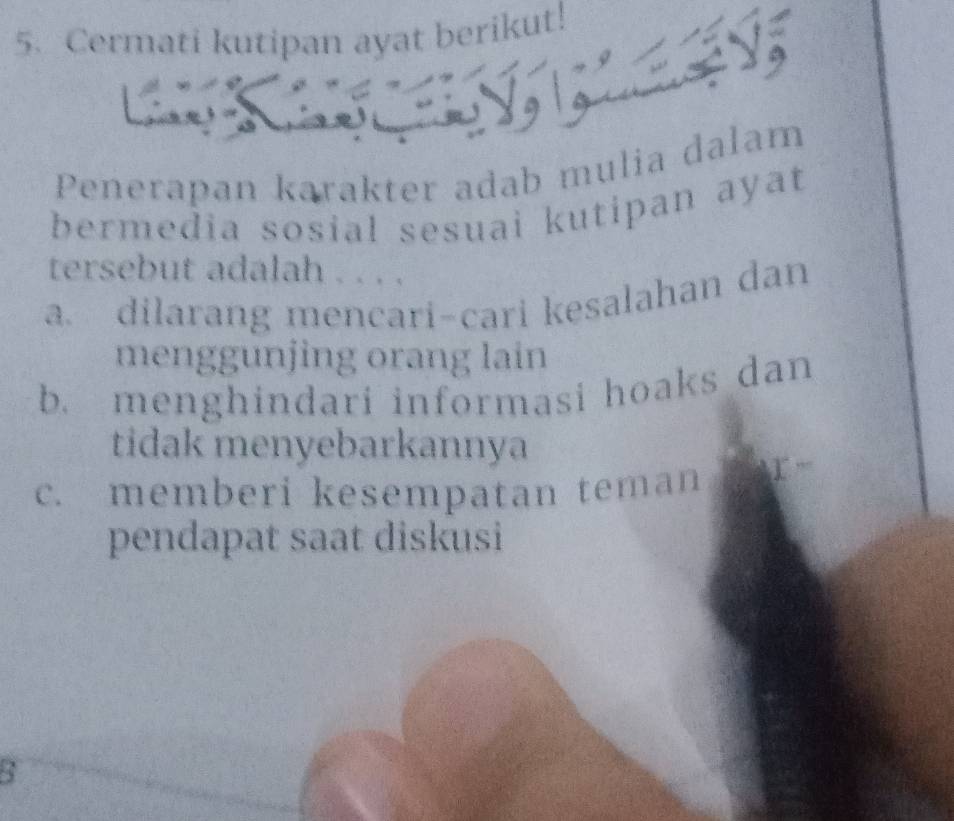 5. Cermati kutipan ayat berikut!
وَّلَا تَجَسَّسُوْا وَلَا يَغْتَبْ بَّعْضُكُمْ بَعْضًا
Penerapan karakter adab mulia dalam
bermedia sosial sesuai kutipan ayat
tersebut adalah . . . .
a. dilarang mencari-cari kesalahan dan
menggunjing orang lain
b. menghindari informasi hoaks dan
tidak menyebarkannya
c. memberi kesempatan teman
pendapat saat diskusi